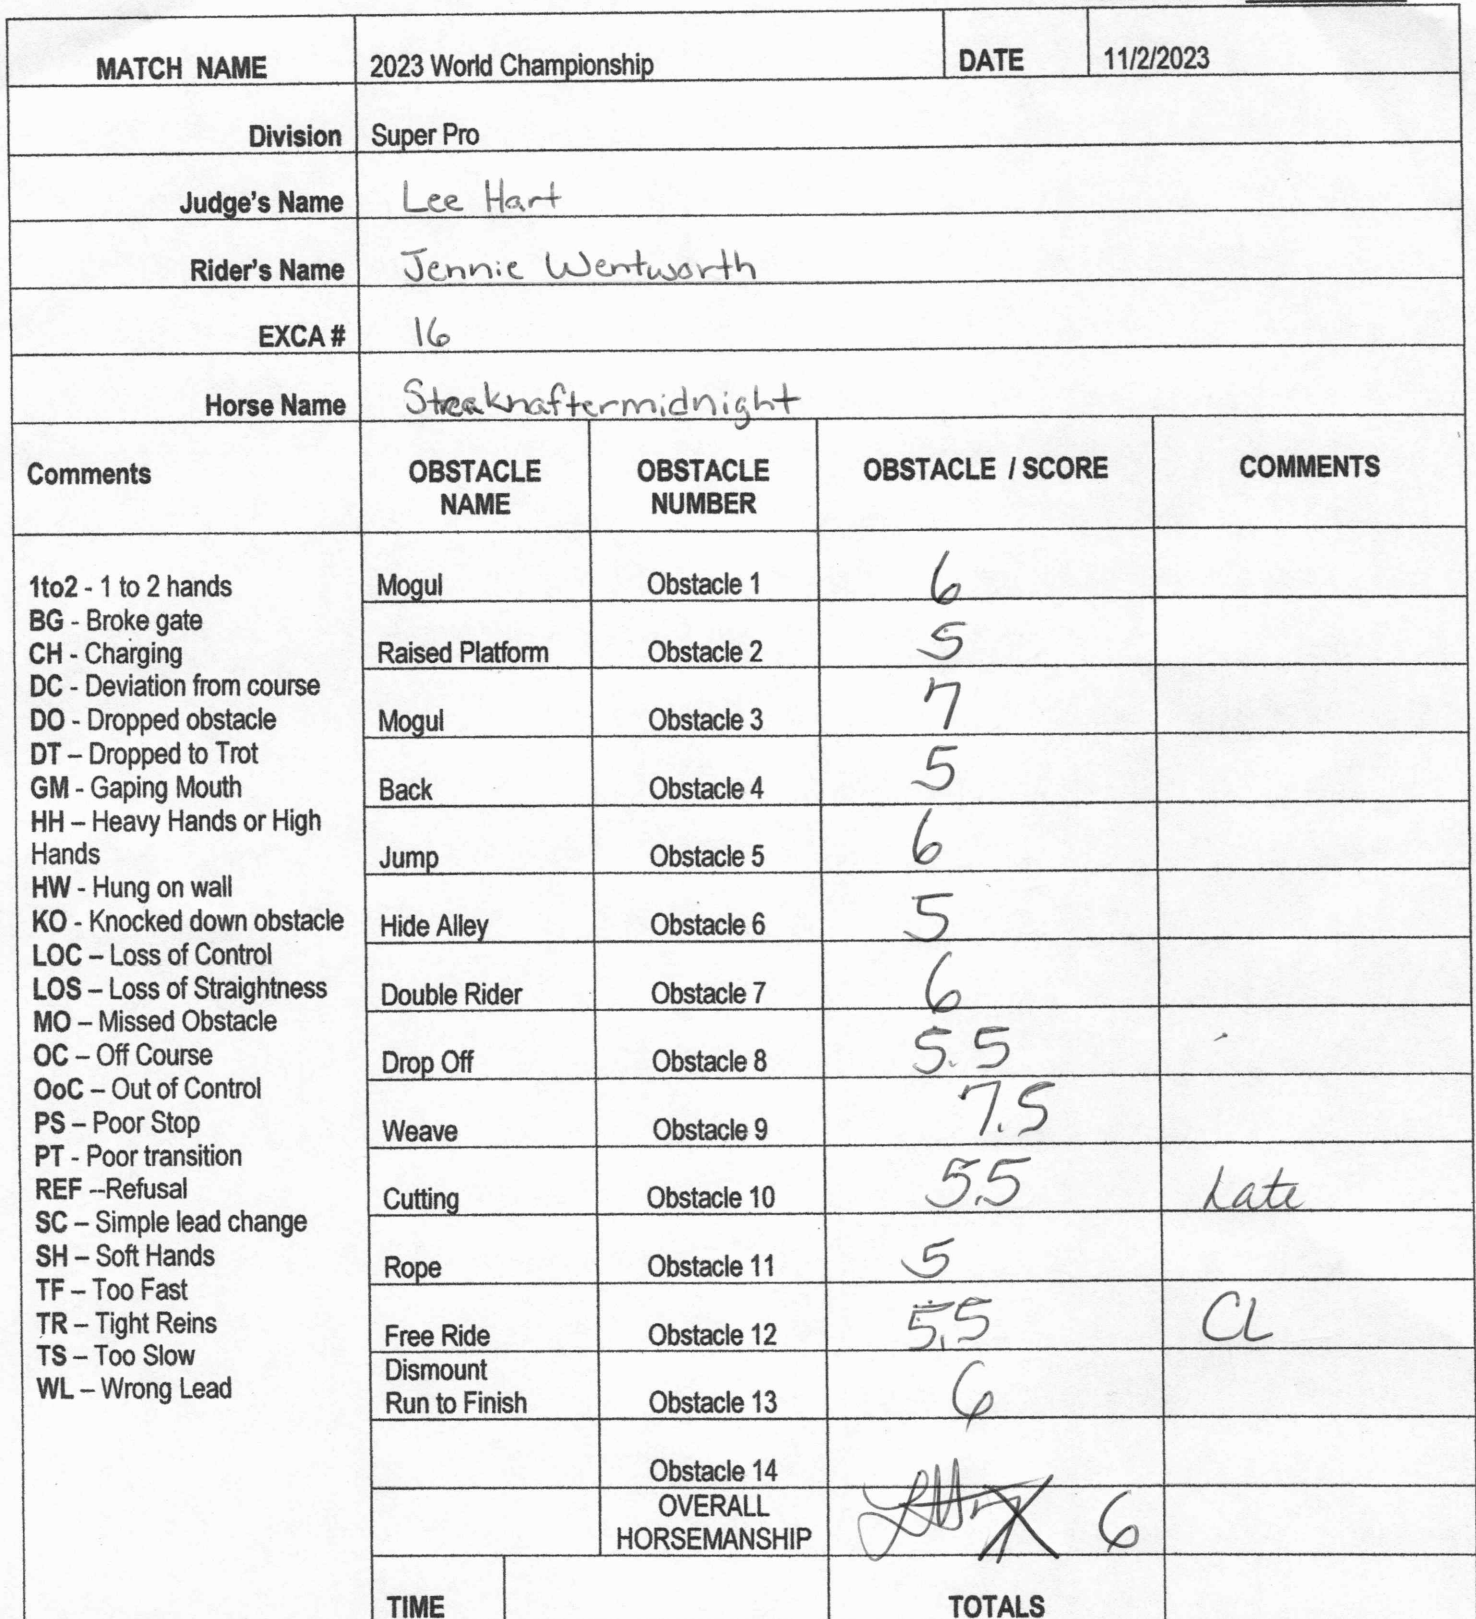 MATCH NAME 2023 World Championship DATE 11/2/2023
Division Super Pro
Judge's Name Lee Hart
Rider's Name Jennie Wentworth
EXCA # 16
Horse Name Streaknaftermidnight
Comments OBSTACLE NAME OBSTACLE NUMBER OBSTACLE / SCORE COMMENTS
1to2 - 1 to 2 hands
BG - Broke gate
CH - Charging
DC - Deviation from course
DO - Dropped obstacle
DT – Dropped to Trot
GM - Gaping Mouth
HH – Heavy Hands or High
Hands
HW - Hung on wall
KO - Knocked down obstacle
LOC – Loss of Control
LOS – Loss of Straightness
MO – Missed Obstacle
OC – Off Course
OoC – Out of Control
PS – Poor Stop
PT - Poor transition
REF --Refusal
SC – Simple lead change
SH – Soft Hands
TF – Too Fast
TR – Tight Reins
TS – Too Slow
WL – Wrong Lead
Mogul Obstacle 1 6
Raised Platform Obstacle 2 5
Mogul Obstacle 3 7
Back Obstacle 4 5
Jump Obstacle 5 6
Hide Alley Obstacle 6 5
Double Rider Obstacle 7 6
Drop Off Obstacle 8 5.5
Weave Obstacle 9 7.5
Cutting Obstacle 10 5.5 Late
Rope Obstacle 11 5
Free Ride Obstacle 12 5.5 CL
Dismount
Run to Finish Obstacle 13 6
Obstacle 14
OVERALL
HORSEMANSHIP 6
TIME TOTALS